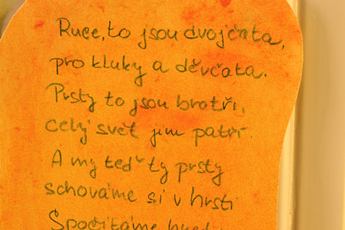 Ruce, to jsou dvojčata,
pro kluky a děvčata.
Prsty to jsou bratři,
celý svět jim patří.
A my teď ty prsty
schováme si v hrsti
Spočítáme